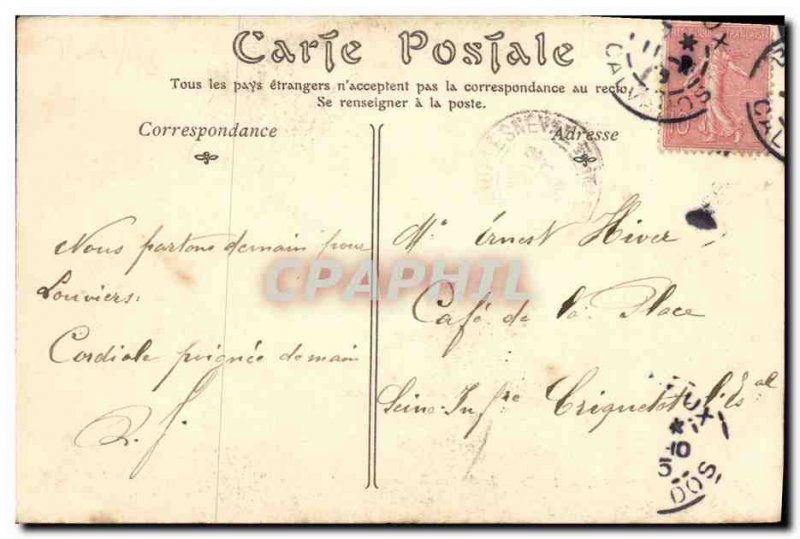 Carte Postale
Tous les pays étrangers n'acceptent pas la correspondance au recto,
Se renseigner à la poste.
Correspondance
Adresse
Nous partons demain pour
Louviers.
Cordiale poignée de main
Mr Ernest Hiver
Café de la Place
Criquetot l'Esal
Seine Infre
CPAPHIL
CALV
CAL
10